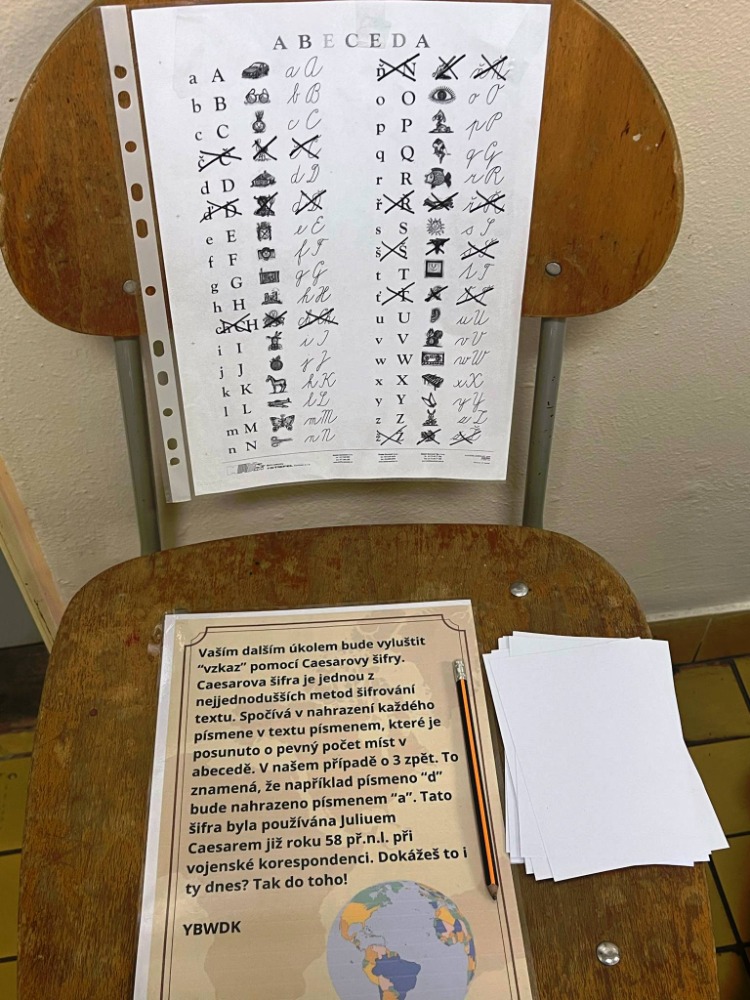 A B E C E D A
a A a A
b B b B
c C c C
č Č
d D d D
ď Ď
e E e E
f F f F
g G g G
h H h H
ch CH ch Ch
i I i I
j J j J
k K k K
l L l L
m M m M
n N n N
ň Ň
o O o O
p P p P
q Q q Q
r R r R
ř Ř ř Ř
s S s S
š Š
t T t T
ť Ť
u U u U
v V v V
w W w W
x X x X
y Y y Y
z Z z Z
ž Ž
Vaším dalším úkolem bude vyluštit
“vzkaz” pomocí Caesarovy šifry.
Caesarova šifra je jednou z
nejjednodušších metod šifrování
textu. Spočívá v nahrazení každého
písmene v textu písmenem, které je
posunuto o pevný počet míst v
abecedě. V našem případě o 3 zpět. To
znamená, že například písmeno “d”
bude nahrazeno písmenem “a”. Tato
šifra byla používána Juliuem
Caesarem již roku 58 př.n.l. při
vojenské korespondenci. Dokážeš to i
ty dnes? Tak do toho!
YBWDK